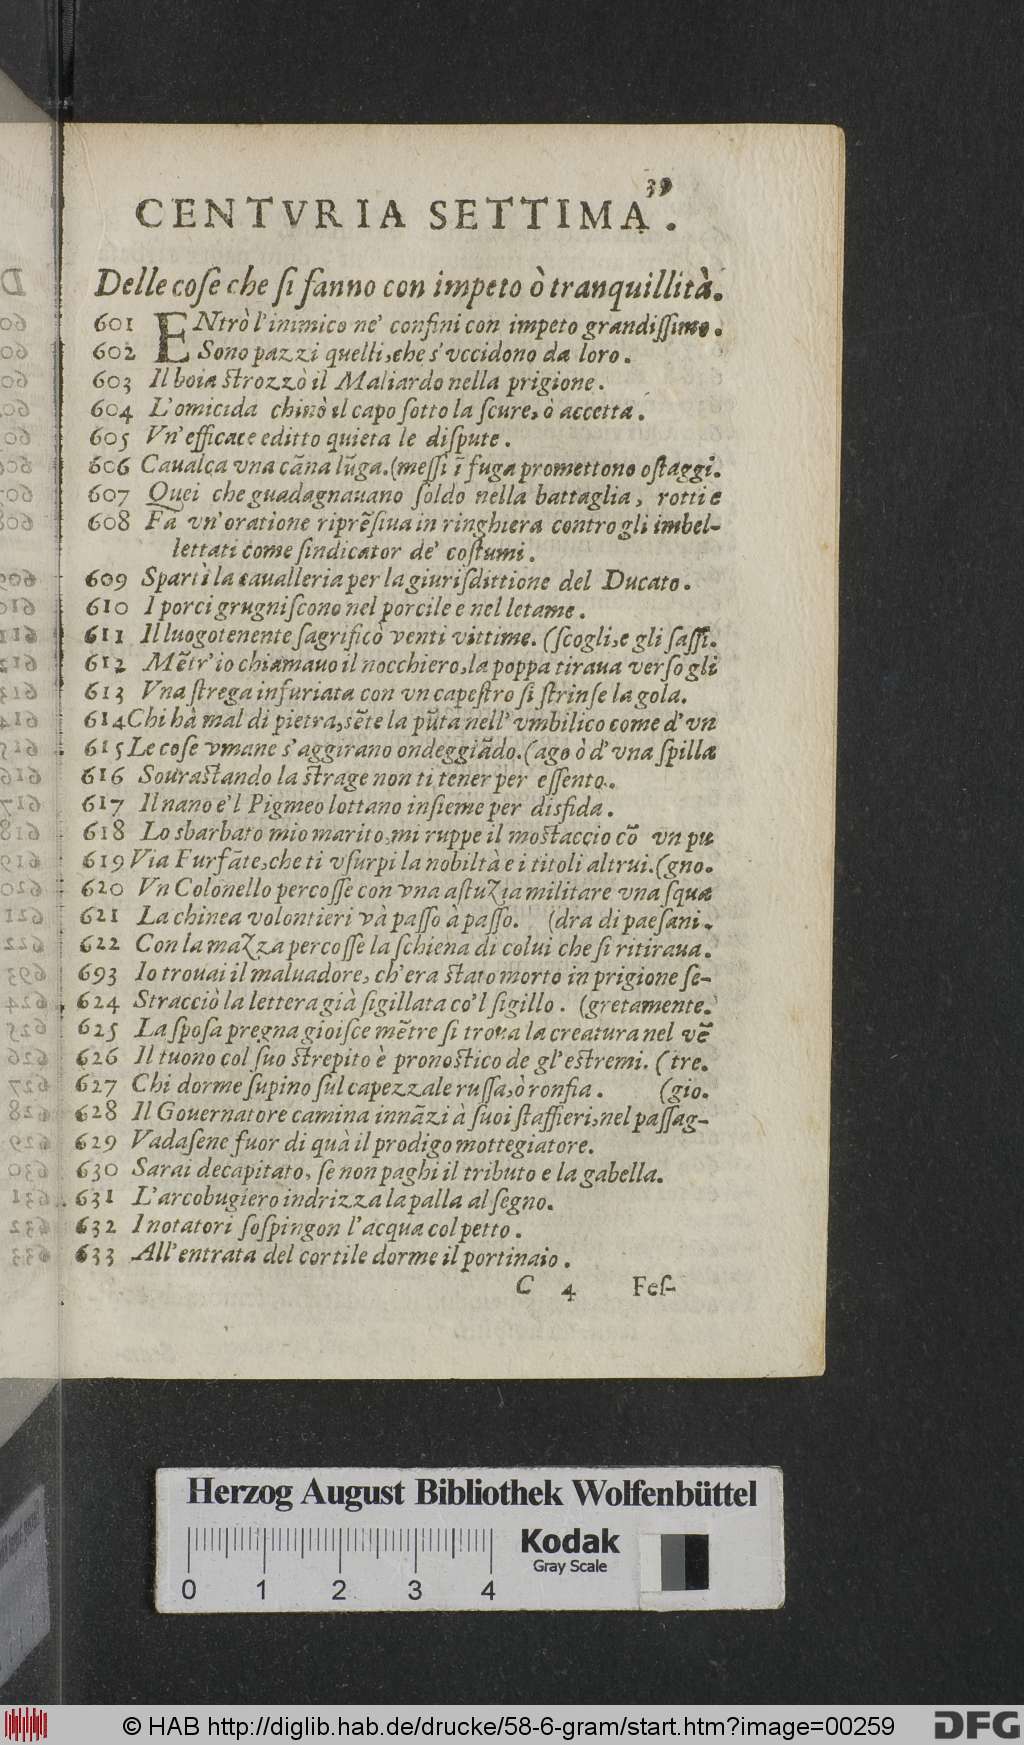 39
CENTVRIA SETTIMA.
Delle coſe che ſi fanno con impeto ò tranquillità.
601 ENtrò l'inimico ne' confini con impeto grandiſſimo.
602 Sono pazzi quelli, che s'vccidono da loro.
603 Il boia strozzò il Maliardo nella prigione.
604 L'omicida chinò il capo ſotto la ſcure, ò accetta.
605 Vn' efficace editto quieta le diſpute.
606 Caualca vna cãna lũga. (meſſi ĩ fuga promettono oſtaggi.
607 Quei che guadagnauano ſoldo nella battaglia, rotti e
608 Fa vn' oratione riprẽſiua in ringhiera contro gli imbel-
lettati come ſindicator de' coſtumi.
609 Spartì la caualleria per la giuriſdittione del Ducato.
610 I porci grugniſcono nel porcile e nel letame.
611 Il luogotenente ſagrificò venti vittime. (ſcogli, e gli ſaſſi.
612 Mẽtr' io chiamauo il nocchiero, la poppa tiraua verſo gli
613 Vna ſtrega infuriata con vn capeſtro ſi ſtrinſe la gola.
614 Chi hà mal di pietra, sẽte la pũta nell' vmbilico come d' vn
615 Le coſe vmane s' aggirano ondeggiãdo. (ago ò d' vna ſpilla
616 Souraſtando la ſtrage non ti tener per eſſento.
617 Il nano e'l Pigmeo lottano inſieme per disfida.
618 Lo sbarbato mio marito, mi ruppe il moſtaccio cõ vn pu
619 Via Furfãte, che ti vſurpi la nobiltà e i titoli altrui. (gno.
620 Vn Colonello percoſſe con vna aſtuzia militare vna ſqua
621 La chinea volontieri và paſſo à paſſo. (dra di paeſani.
622 Con la mazza percoſſe la ſchiena di colui che ſi ritiraua.
693 Io trouai il maluadore, ch' era ſtato morto in prigione ſe-
624 Stracciò la lettera già ſigillata co'l ſigillo. (gretamente.
625 La ſpoſa pregna gioiſce mẽtre ſi troua la creatura nel vẽ
626 Il tuono col ſuo ſtrepito è pronoſtico de gl' eſtremi. (tre.
627 Chi dorme ſupino ſul capezzale ruſſa, ò ronfia. (gio.
628 Il Gouernatore camina innãzi à ſuoi ſtaffieri, nel paſſag-
629 Vadaſene fuor di quà il prodigo mottegiatore.
630 Sarai decapitato, ſe non paghi il tributo e la gabella.
631 L'arcobugiero indrizza la palla al ſegno.
632 I notatori ſoſpingon l'acqua col petto.
633 All' entrata del cortile dorme il portinaio.
C 4 Feſ-
Herzog August Bibliothek Wolfenbüttel
Kodak
Gray Scale
0 1 2 3 4
© HAB http://diglib.hab.de/drucke/58-6-gram/start.htm?image=00259
DFG